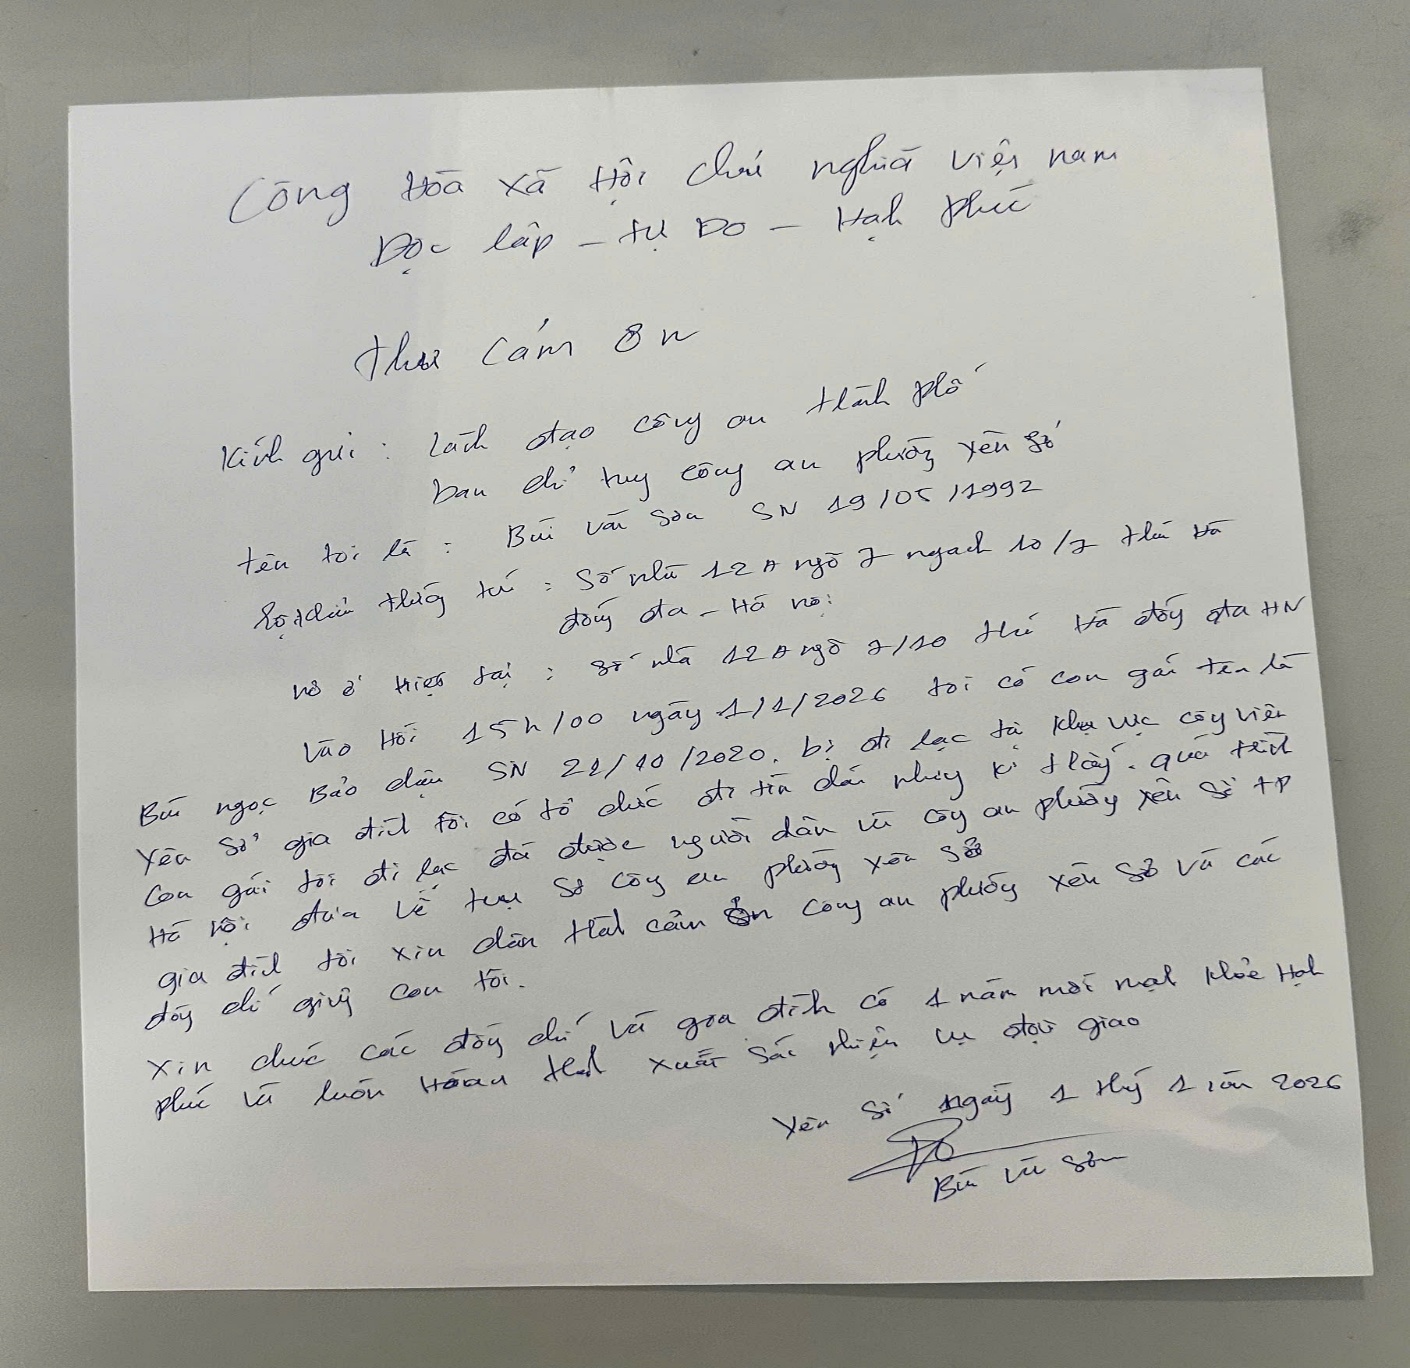 Công Hòa Xã Hội chủ nghĩa Việt nam
Độc lập - Tự Do - Hạnh Phúc
Thư Cảm Ơn
Kính gửi : Lãnh đạo công an thành phố
ban chỉ huy công an phường Yên Sở
tên tôi là : Bùi Văn Sơn SN 19/05/1992
hộ khẩu thường trú : Số nhà 12A ngõ 7 ngạch 10/7
đống đa - Hà nội
nơ ở hiện tại : số nhà 12A ngõ 7/10 đống đa HN
Vào hồi 15h/00 ngày 1/1/2026 tôi có con gái tên là
Bùi ngọc Bảo SN 21/10/2020. bị đi lạc tại khu vực công viên
Yên Sở gia đình tôi có tổ chức đi tìm nhưng k thấy. quá trình
con gái tôi đi lạc đã được người dân và công an phường Yên Sở TP
Hà Nội đưa về trụ sở công an phường Yên Sở
gia đình tôi xin chân thành cảm ơn công an phường Yên Sở và các
đồng chí giúp con tôi.
Xin chúc các đồng chí và gia đình có 1 năm mới mạnh khỏe Hạnh
phúc và luôn Hoàn thành xuất sắc nhiệm vụ được giao
Yên Sở ngày 1 tháng 1 năm 2026
Bùi Văn Sơn